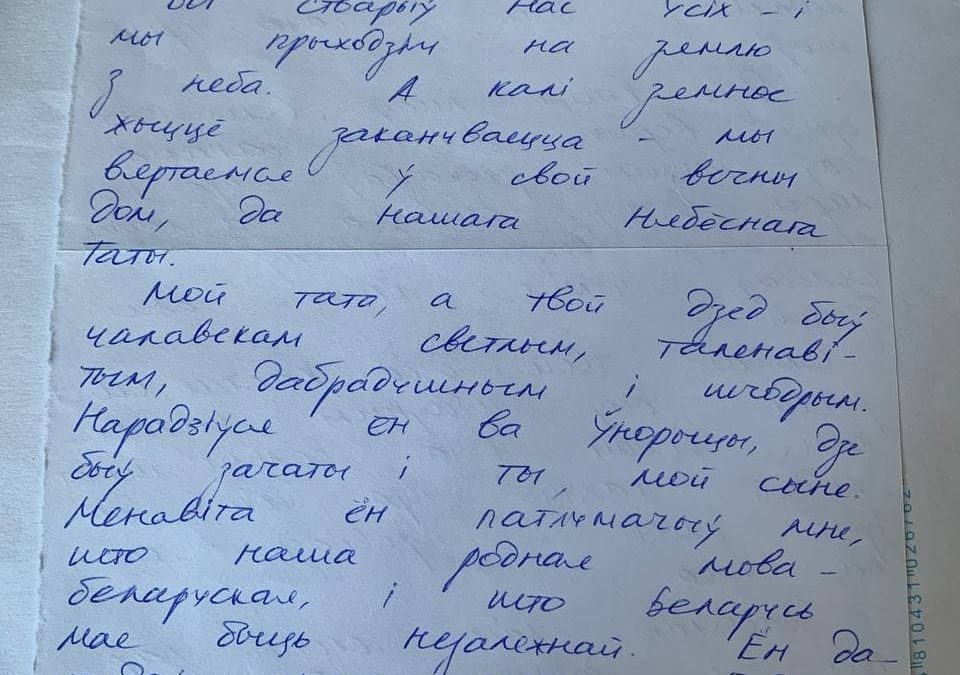 стварыў нас ўсіх – і
мы прыходзім на землю
з неба. А калі земное
жыццё заканчваецца – мы
вяртаемся ў свой вечны
дом, да нашага Нябёснага
Таты.
Мой тата, а твой дзед быў
чалавекам светлым, таленаві-
тым, дабрадушным і шчодрым.
Нарадзіўся ён ва Ўнорыцы, дзе
быў зачаты і ты, мой сыне.
Менавіта ён патлумачыў мне,
што наша родная мова –
беларуская, і што Беларусь
мае быць незалежнай. Ён да-
810431"026762"